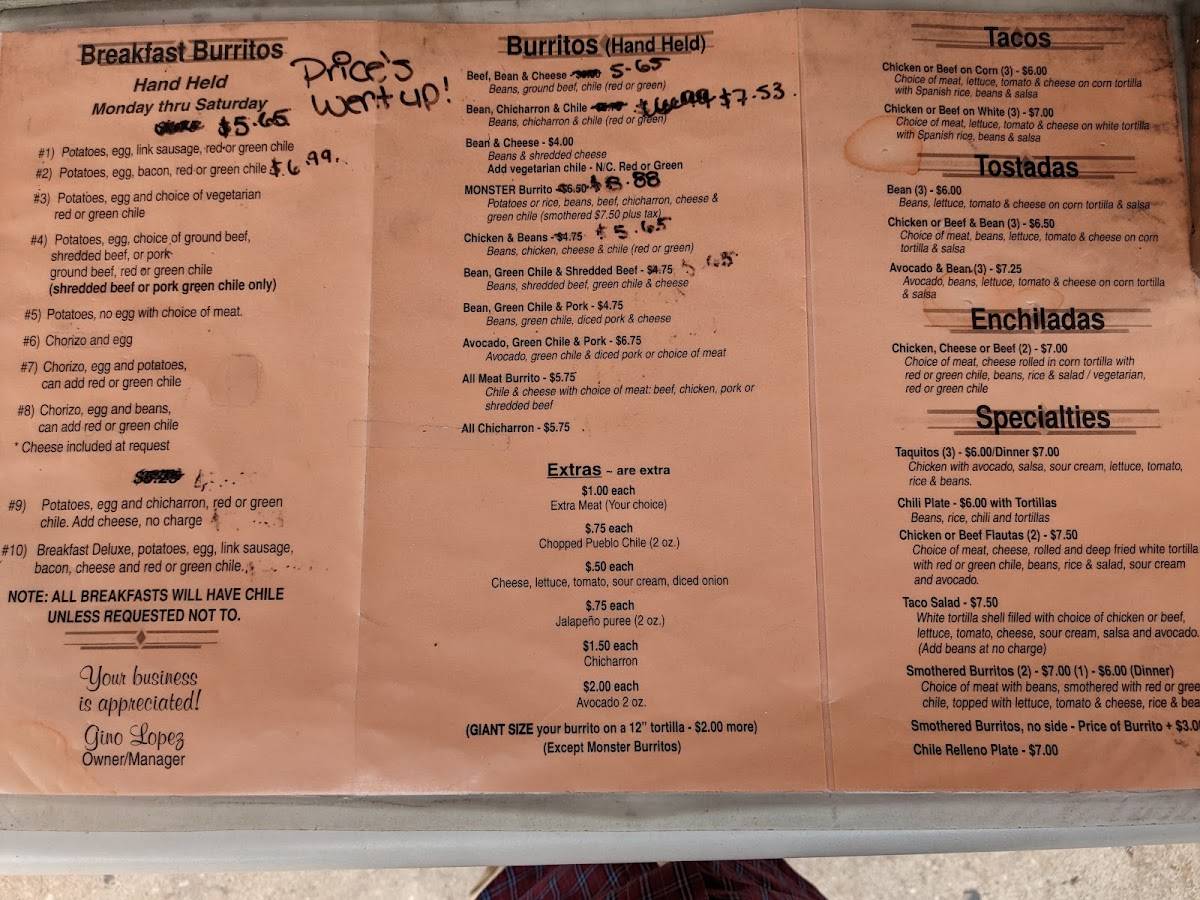 Breakfast Burritos
Hand Held
Monday thru Saturday
$5.65
Price's
Went up!
#1) Potatoes, egg, link sausage, red or green chile
#2) Potatoes, egg, bacon, red or green chile $6.99.
#3) Potatoes, egg and choice of vegetarian
red or green chile
#4) Potatoes, egg, choice of ground beef,
shredded beef, or pork
ground beef, red or green chile
(shredded beef or pork green chile only)
#5) Potatoes, no egg with choice of meat.
#6) Chorizo and egg
#7) Chorizo, egg and potatoes,
can add red or green chile
#8) Chorizo, egg and beans,
can add red or green chile
* Cheese included at request
#9) Potatoes, egg and chicharron, red or green
chile. Add cheese, no charge
#10) Breakfast Deluxe, potatoes, egg, link sausage,
bacon, cheese and red or green chile.
NOTE: ALL BREAKFASTS WILL HAVE CHILE
UNLESS REQUESTED NOT TO.
Your business
is appreciated!
Gino Lopez
Owner/Manager
Burritos (Hand Held)
Beef, Bean & Cheese 5.65
Beans, ground beef, chile (red or green)
Bean, Chicharron & Chile - $6.99 $7.53.
Beans, chicharron & chile (red or green)
Bean & Cheese - $4.00
Beans & shredded cheese
Add vegetarian chile - N/C. Red or Green
MONSTER Burrito - $6.50 $8.88
Potatoes or rice, beans, beef, chicharron, cheese &
green chile (smothered $7.50 plus tax)
Chicken & Beans - $4.75 $5.65
Beans, chicken, cheese & chile (red or green)
Bean, Green Chile & Shredded Beef - $4.75 5.65
Beans, shredded beef, green chile & cheese
Bean, Green Chile & Pork - $4.75
Beans, green chile, diced pork & cheese
Avocado, Green Chile & Pork - $6.75
Avocado, green chile & diced pork or choice of meat
All Meat Burrito - $5.75
Chile & cheese with choice of meat: beef, chicken, pork or
shredded beef
All Chicharron - $5.75
Extras ~ are extra
$1.00 each
Extra Meat (Your choice)
$.75 each
Chopped Pueblo Chile (2 oz.)
$.50 each
Cheese, lettuce, tomato, sour cream, diced onion
$.75 each
Jalapeño puree (2 oz.)
$1.50 each
Chicharron
$2.00 each
Avocado 2 oz.
(GIANT SIZE your burrito on a 12" tortilla - $2.00 more)
(Except Monster Burritos)
Tacos
Chicken or Beef on Corn (3) - $6.00
Choice of meat, lettuce, tomato & cheese on corn tortilla
with Spanish rice, beans & salsa
Chicken or Beef on White (3) - $7.00
Choice of meat, lettuce, tomato & cheese on white tortilla
with Spanish rice, beans & salsa
Tostadas
Bean (3) - $6.00
Beans, lettuce, tomato & cheese on corn tortilla & salsa
Chicken or Beef & Bean (3) - $6.50
Choice of meat, beans, lettuce, tomato & cheese on corn
tortilla & salsa
Avocado & Bean (3) - $7.25
Avocado, beans, lettuce, tomato & cheese on corn tortilla
& salsa
Enchiladas
Chicken, Cheese or Beef (2) - $7.00
Choice of meat, cheese rolled in corn tortilla with
red or green chile, beans, rice & salad / vegetarian,
red or green chile
Specialties
Taquitos (3) - $6.00/Dinner $7.00
Chicken with avocado, salsa, sour cream, lettuce, tomato,
rice & beans.
Chili Plate - $6.00 with Tortillas
Beans, rice, chili and tortillas
Chicken or Beef Flautas (2) - $7.50
Choice of meat, cheese, rolled and deep fried white tortilla
with red or green chile, beans, rice & salad, sour cream
and avocado.
Taco Salad - $7.50
White tortilla shell filled with choice of chicken or beef,
lettuce, tomato, cheese, sour cream, salsa and avocado.
(Add beans at no charge)
Smothered Burritos (2) - $7.00 (1) - $6.00 (Dinner)
Choice of meat with beans, smothered with red or gree
chile, topped with lettuce, tomato & cheese, rice & bea
Smothered Burritos, no side - Price of Burrito + $3.0
Chile Relleno Plate - $7.00